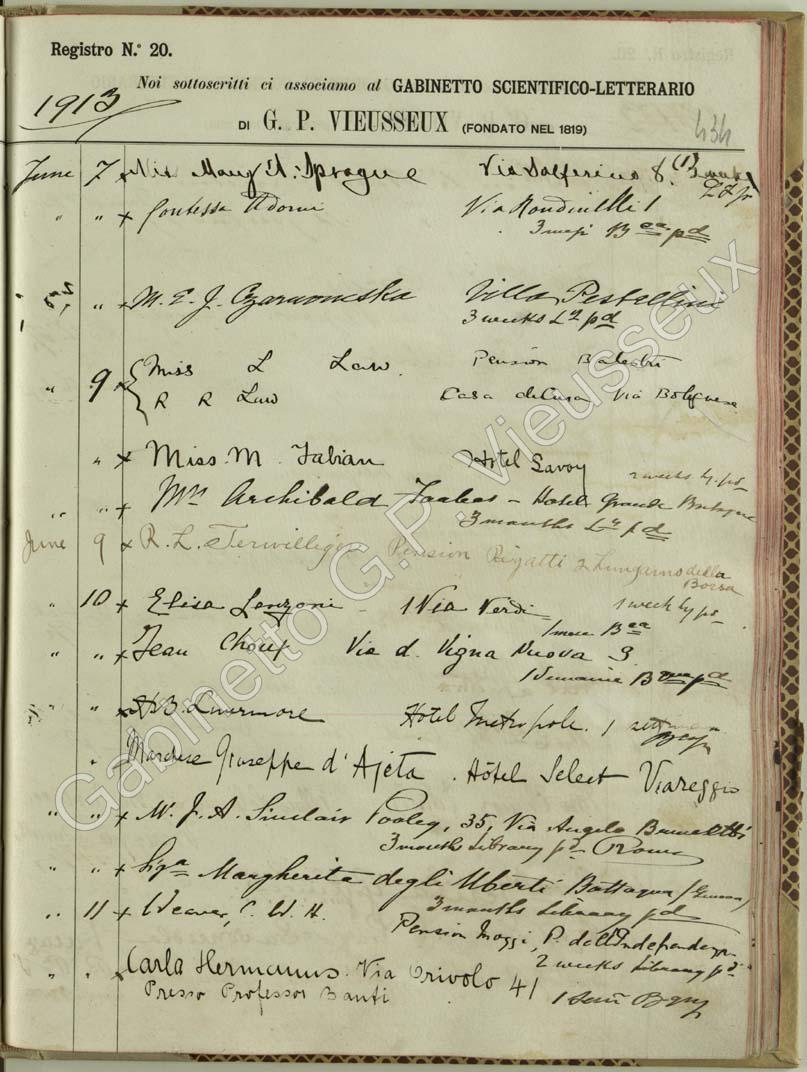 Registro N.° 20.
Noi sottoscritti ci associamo al GABINETTO SCIENTIFICO-LETTERARIO
1913
DI G. P. VIEUSSEUX (FONDATO NEL 1819)
434
June 7 x Mary A. Sprague Via Solferino 8.
" " x Contessa Adorni Via Rondinelli 1
3 mesi B pd
" x M. E. J. Czarnomska Villa Pestellini
3 weeks L pd
" 9 x Miss L Law. Pension Balestri
R R Law Casa di Cura Via Bolognese
" x Miss. M. Fabian Hotel Savoy
2 weeks L. pd
" " x Mrs Archibald Hotel Grande Bretagne
3 months L pd
June 9 x R. L. Terwilliger Pension Rigatti 2 Lungarno della
Borsa
" 10 x Elisa Lanzoni - 1 Via Verdi 1 week L pd
1 B
" " x Jean Choux Via d. Vigna Nuova 9
1 Semaine B pd
" " x A B. Livermore Hotel Metropole. 1
" Marchese Giuseppe d'Ajeta. Hôtel Select Viareggio
" " x W. J. A. Sinclair Pooley, 35, Via Angelo Brunetti
3 months Library pd Roma
" " x Sigra Margherita degli Uberti
3 months Library pd
" 11 x Weaver, C. W. H.
Pension P. dell'Indipendenza
2 weeks Library pd
" " x Carla Hermanns. Via Orivolo 41
Presso Professor Banti
Gabinetto G.P. Vieusseux